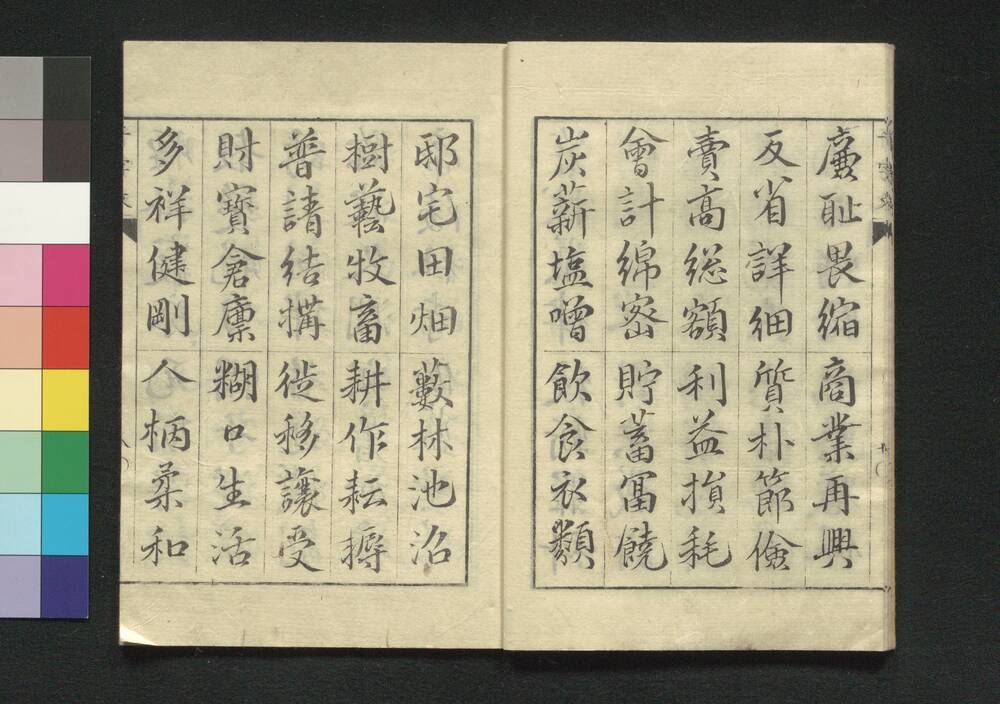 廉耻畏縮商業再興
反省詳細質朴節儉
賣高総額利益損耗
會計綿密貯蓄冨饒
炭薪塩噌飲食衣類
邸宅田畑藪林池沼
樹藝牧畜耕作耘耨
普請結搆徙移讓受
財寶倉廩糊口生活
多祥健剛人柄柔和